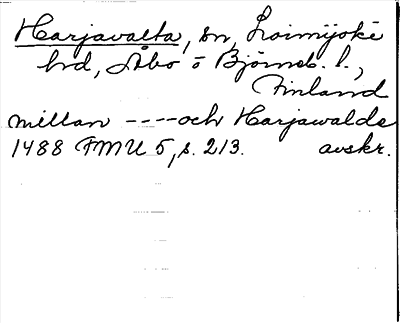 Harjavalta, sn, Loimijoki
hd, Åbo o Björneb. l.,
Finland
mellan ----och Harjawalda
1488 FMU 5, s. 213. avskr.